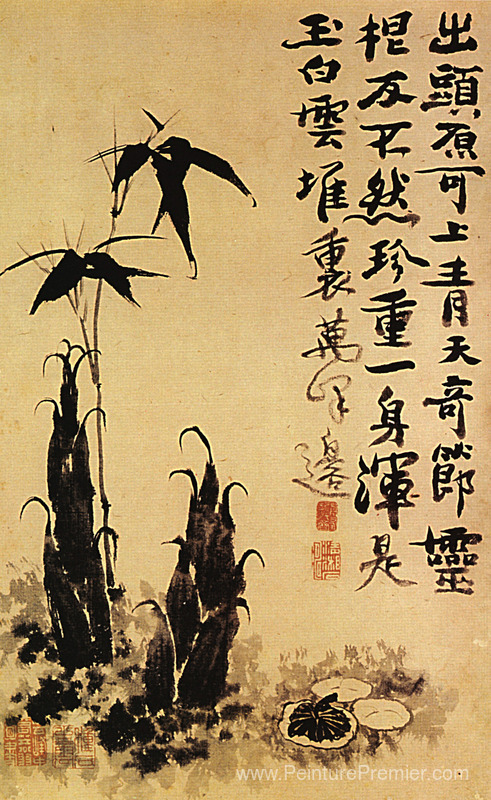 出頭原可上青天奇節靈
根反不然珍重一身渾是
玉白雲堆裏萬峰邊
www.PeinturePremier.com